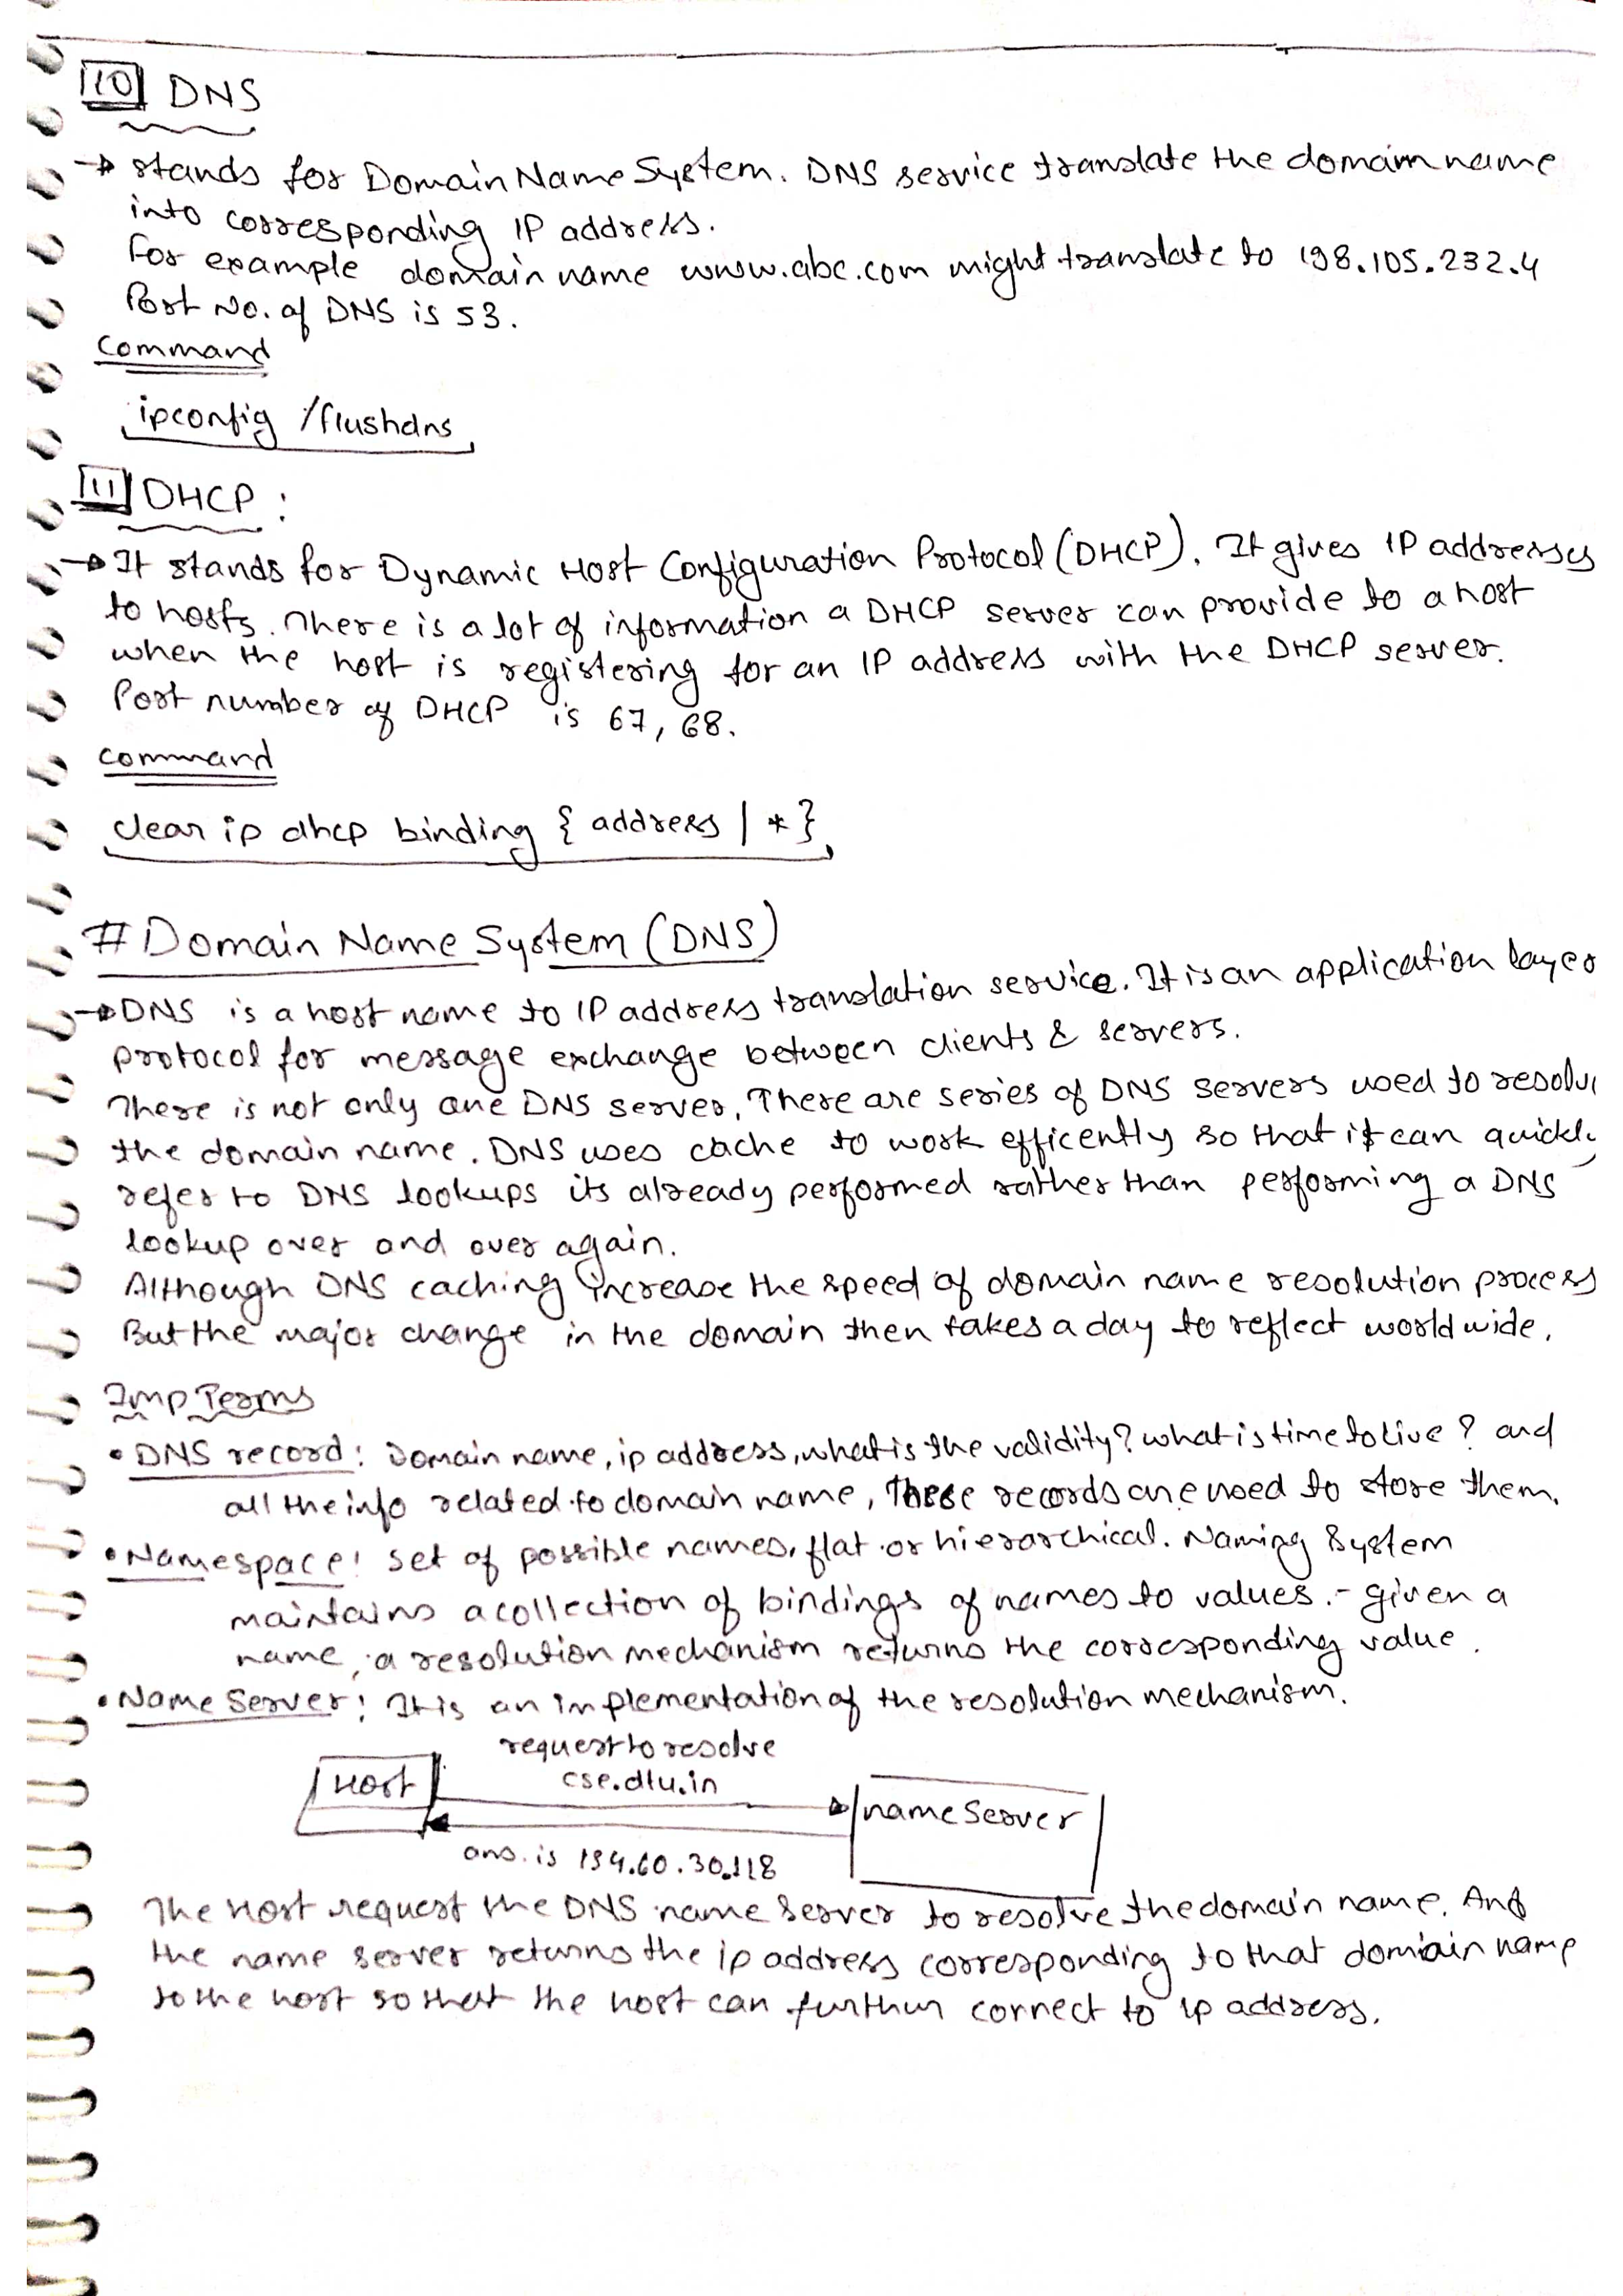 10 DNS
→ stands for Domain Name System. DNS service translate the domain name
into corresponding IP address.
For example domain name www.abc.com might translate to 198.105.232.4
Port No. of DNS is 53.
Command
ipconfig /flushdns
11 DHCP :
→ It stands for Dynamic Host Configuration Protocol (DHCP). It gives IP addresses
to hosts. There is a lot of information a DHCP server can provide to a host
when the host is registering for an IP address with the DHCP server.
Port number of DHCP is 67, 68.
Command
clear ip dhcp binding { address | * }
# Domain Name System (DNS)
→ DNS is a host name to IP address translation service. It is an application layer
protocol for message exchange between clients & servers.
There is not only one DNS server, There are series of DNS servers used to resolve
the domain name. DNS uses cache to work efficently so that it can quickly
refer to DNS lookups its already performed rather than performing a DNS
lookup over and over again.
Although DNS caching increase the speed of domain name resolution process
But the major change in the domain then takes a day to reflect world wide.
Imp Terms
• DNS record: Domain name, ip address, what is the validity? what is time to live ? and
all the info related to domain name, These records are used to store them.
• Namespace: set of possible names, flat or hierarchical. Naming System
maintains a collection of bindings of names to values. - given a
name, a resolution mechanism returns the corresponding value.
• Name Server: It is an implementation of the resolution mechanism.
request to resolve
Host cse.dtu.in
name Server
ans. is 194.60.30.118
The Host request the DNS name Server to resolve the domain name. And
the name server returns the ip address corresponding to that domain name
to the host so that the host can further connect to ip address.